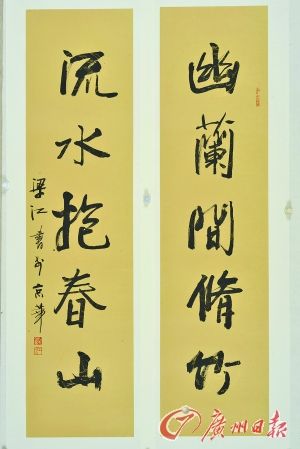 幽蘭間脩竹
流水抱春山
梁江書於京華
廣州日報